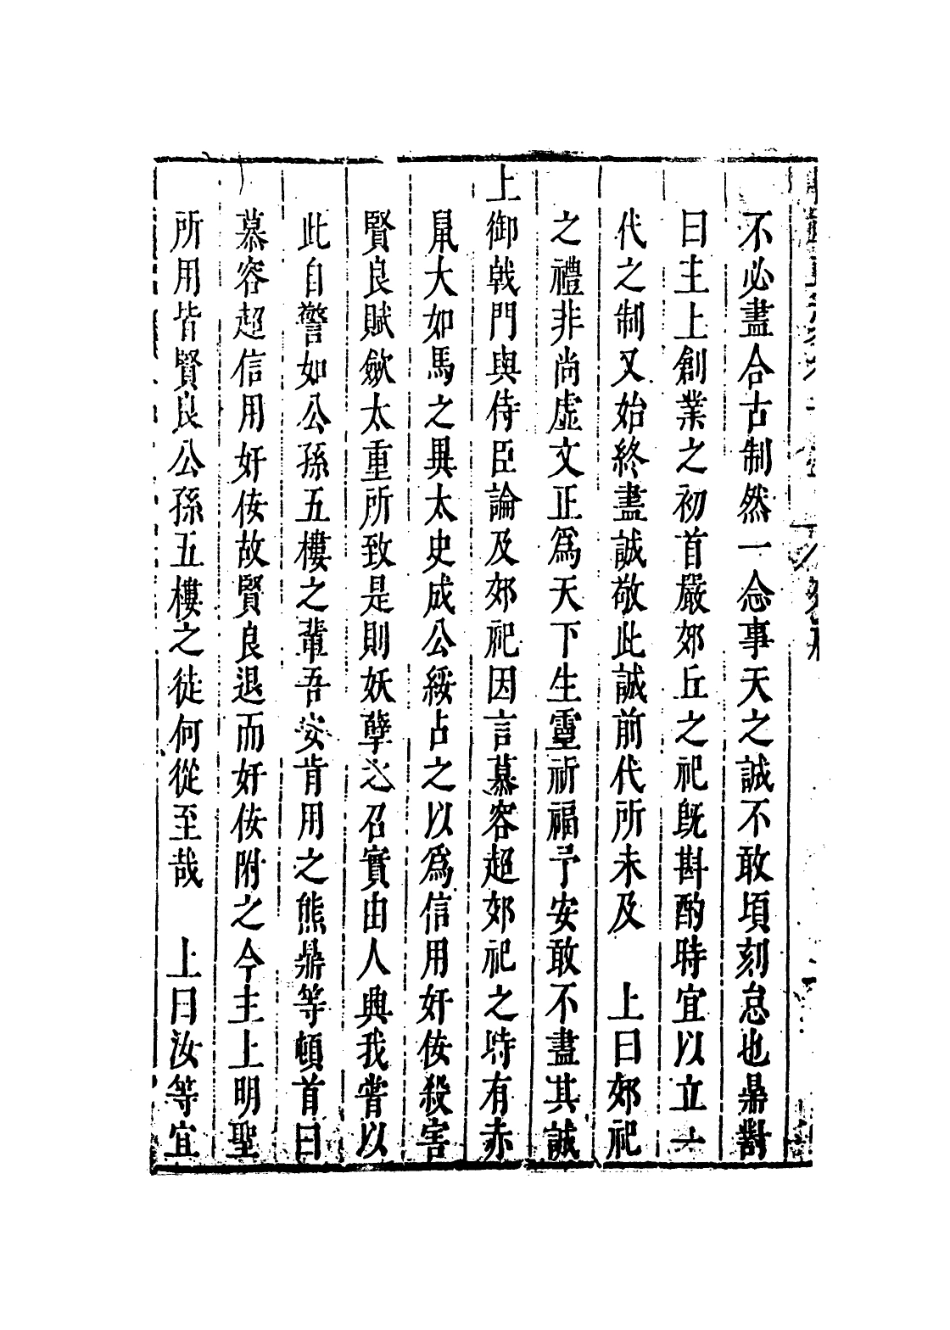 不必盡合古制然一念事天之誠不敢頃刻怠也鼎對
曰主上創業之初首嚴郊丘之祀旣斟酌時宜以立一
代之制又始終盡誠敬此誠前代所未及　上曰郊祀
之禮非尚虛文正爲天下生靈祈福予安敢不盡其誠
上御戟門與侍臣論及郊祀因言慕容超郊祀之時有赤
鼠大如馬之異太史成公綏占之以爲信用奸佞殺害
賢良賦歛太重所致是則妖孽之召實由人興我嘗以
此自警如公孫五樓之輩吾安肯用之熊鼎等頓首曰
慕容超信用奸佞故賢良退而奸佞附之今主上明聖
所用皆賢良公孫五樓之徒何從至哉　上曰汝等宜